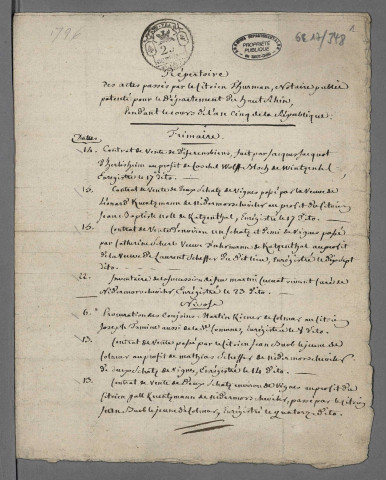 1796
6E17/348
PROPRIÉTÉ
PUBLIQUE
Répertoire
des actes passés par le Citoien Thurman, Notaire public
patenté pour le Département du haut Rhin,
pendant le cours de l'an cinq de la République:
Frimaire.
Dattes.
14. Contrat de Vente de différens biens, fait par Jacques Jacquot
d'herlisheim au profit de Wolff Bloch de Wintzenheim
Enregistré le 17 dito.
15. Contrat de Vente de deux schatz de Vignes passé par la Veuve de
Léonard Kuentzmann de niedermorschwiler au profit du Citoien
Jean Baptiste noll de Katzenthal, Enregistré le 17 dito.
15. Contrat de Vente d'environ un schatz et demi de Vignes passé
par Catherine Scherb Veuve de Katzenthal au profit
de la Veuve de Laurent Scheffer, Enregistré le dix sept
dito.
22. Inventaire de la succession de feu martin vivant Curé de
Nidermorschwiler Enregistré le 23 Dito.
Nivose
6. Procuration des Conjoins Martin Kiener de Colmar au Citoien
Joseph aussi de la de Commune, Enregistré le 8 dito.
13. Contrat de Vente passé par le Citoien Jean Buob le jeune de
Colmar au profit de mathias Scheffer de nidermorschwiler
de deux schatz de Vignes, Enregistré le 14 Dito.
13. Contrat de Vente de Deux schatz environ de Vignes au profit du
Citoien gall Kuentzmann de nidermorschwiler, passé par le Citoien
Jean Buob le jeune de Colmar, Enregistré le quatorze dito.